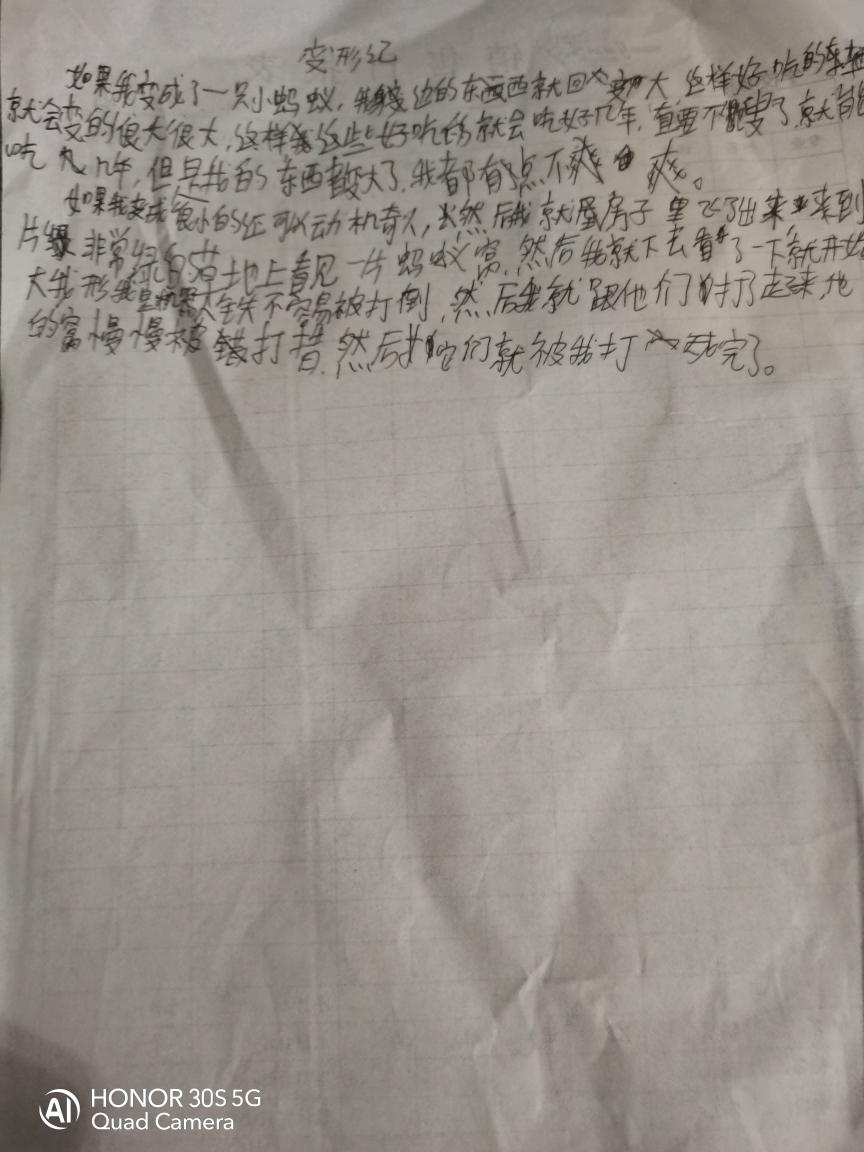 变形纪
如果我变成了一只小蚂蚁，我边的东西就回变大 这样好吃的东西
就会变的很大很大，这样我这些好吃的就会吃好几年，直要不馊了，就能
吃 几年，但是我的东西都变大了，我都有点不爽 爽。
如果我变成很小的还可以动机奇人，然后我就屋房子里飞了出来 来到
片绿非常绿的草地上看见一片蚂蚁窝，然后我就下去看了一下，就开始
大我形我是机器人铁不容易被打倒，然后我就跟他们对打了起来，他
的窝慢慢被错打措，然后它们就被我打死完了。
HONOR 30S 5G
Quad Camera